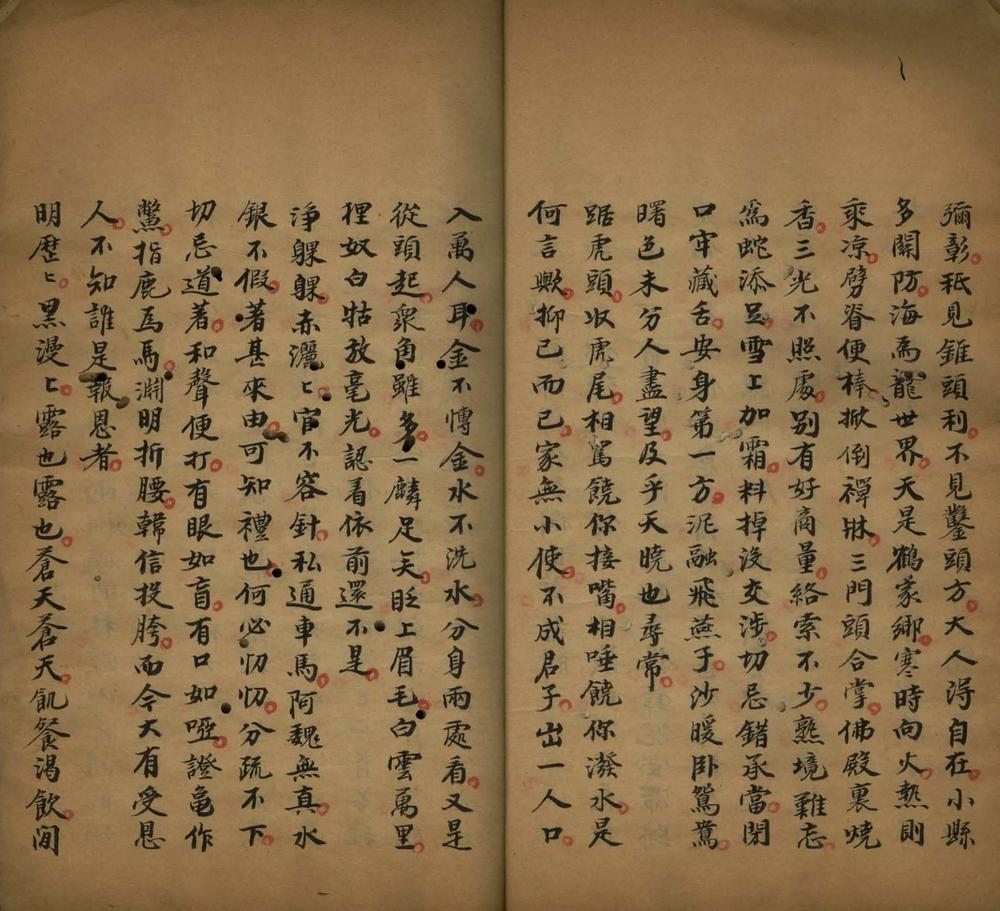 彌彰秖見錐頭利不見鑿頭方大人淂自在小縣
多關防海為龍世界天是鶴家鄉寒時向火熱則
乘凉劈脊便棒掀倒禪牀三門頭合掌佛殿裏燒
香三光不照處別有好商量絡索不少熟境難忘
為蛇添足雪上加霜料掉沒交涉切忌錯承當閉
口牢藏舌安身第一方泥融飛燕子沙暖卧鴛鴦
曙色未分人盡望及乎天曉也尋常
踞虎頭收虎尾相罵饒你接嘴相唾饒你潑水是
何言歟抑已而已家無小使不成君子出一人口
入萬人耳金不愽金水不洗水分身兩處看又是
從頭起衆角雖多一麟足矣眨上眉毛白雲萬里
狸奴白牯放毫光認着依前還不是
淨躶躶赤灑〻官不容針私通車馬阿魏無真水
銀不假著甚來由可知禮也何必忉忉分疏不下
切忌道著和聲便打有眼如盲有口如啞證龜作
鱉指鹿為馬淵明折腰韓信投胯而今大有受恩
人不知誰是報恩者
明歷〻黑漫〻露也露也蒼天蒼天飢餐渴飲閒